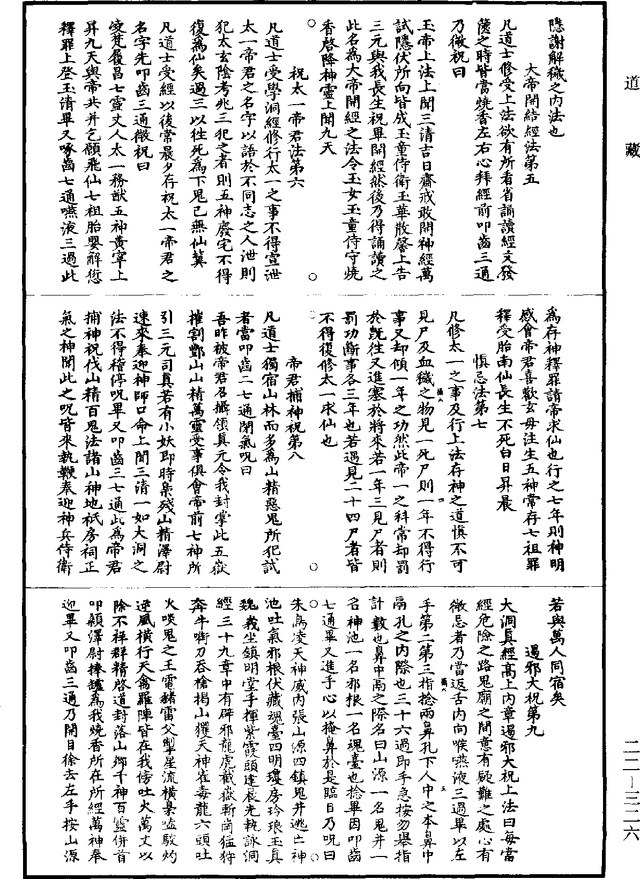 道藏
隱謝解穢之內法也
大帝開結經法第五
凡道士修受上法欲有所看省誦讀經文發
篋之時皆當燒香左右心拜經前叩齒三通
乃微祝曰
玉帝上法上聞三清吉日齋戒敢開神經萬
試隱伏所向皆成玉童侍衛玉華散馨上告
三元與我長生祝畢開經然後乃得誦讀之
此名為大帝開經之法令玉女玉童侍守燒
香啓降神靈上聞九天
祝太一帝君法第六
凡道士受學洞經修行太一之事不得宣泄
太一帝君之名字以語於不同志之人泄則
犯太玄陰考兆三犯之者則五神廢宅不得
復為仙矣過三以往死為下鬼已無仙冀
凡道士受經以後常晨夕存祝太一帝君之
名字先叩齒三通微祝曰
愛梵履昌七靈丈人太一務猷五神黃寧上
昇九天與帝共并乞願飛仙七祖胎嬰解愆
釋罪上登玉清畢又啄齒七通嚥液三過此
為存神釋罪請帝求仙也行之七年則神明
感會帝君喜歡玄母注生五神常存七祖罪
釋受胎南仙長生不死白日昇晨
慎忌法第七
凡修太一之事及行上法存神之道慎不可
見尸及血穢之物見一死尸則一年不得行
事又却傾一年之功然此帝一之科常却罰
於既往又進塞於將來若一年三見尸者則
罰功斷事各三年也若過見二十四尸者皆
不得復修太一求仙也
帝君捕神祝第八
凡道士獨宿山林而多為山精惡鬼所犯試
者當叩齒二七通閉氣呪曰
吾昨被帝君召攝領真元令我封掌此五嶽
摧割酆山山精萬靈受事俱會帝前七神所
引三元司真若有小妖即時梟殘山精澤尉
速來奉迎神師口命上聞三清一如大洞之
法不得稽停呪畢又叩齒三七通此為帝君
捕神祝伐山精百鬼法諸山神地祇房祠正
氣之神聞此之呪皆來執鞭奉迎神兵侍衛
若與萬人同宿矣
遏邪大祝第九
大洞真經高上內章遏邪大祝上法曰每當
經危險之路鬼廟之間意有疑難之處心有
微忌者乃當返舌內向喉嚥液三過畢以左
手第二第三指捻兩鼻孔下人中之本鼻中
鬲孔之內際也三十六過即手急按勿舉指
計數也鼻中鬲之際名曰山源一名鬼井一
名神池一名邪根一名魂臺也捻畢因叩齒
七通畢又進手心以掩鼻於是臨目乃呪曰
朱鳥凌天神威內張山源四鎮鬼井逃亡神
池吐氣邪根伏藏魂臺四明瓊房玲琅玉真
巍峩坐鎮明堂手揮紫霞頭建晨光執詠洞
經三十九章中有辟邪龍虎截嶽斬岡猛狩
奔牛㗖刀吞槍揭山玃天神雀毒龍六頭吐
火啖鬼之王電豬雷父掣星流橫梟磕駁灼
逆風橫行天禽羅陣皆在我傍吐火萬丈以
除不祥群精啓道封落山鄉千神百靈併首
叩顙澤尉捧鑪為我燒香所在所經萬神奉
迎畢又叩齒三通乃開目徐去左手按山源
二二—三二六